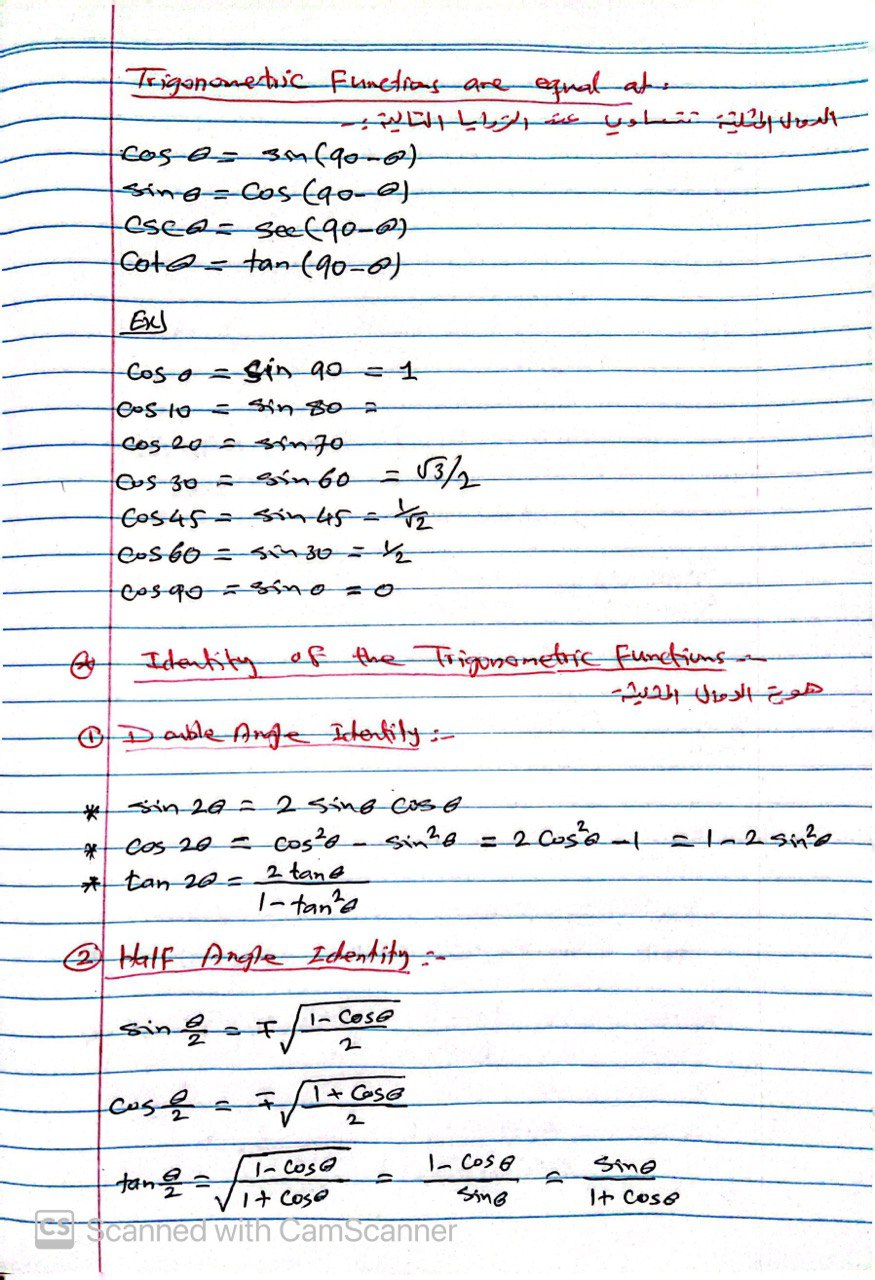 Trigonometric Functions are equal at:
الدوال المثلثية تتساوى عند الزوايا التالية :-
cos θ = sin(90-θ)
sin θ = cos(90-θ)
csc θ = sec(90-θ)
cot θ = tan(90-θ)
Ex/
cos 0 = sin 90 = 1
cos 10 = sin 80 =
cos 20 = sin 70
cos 30 = sin 60 = √3/2
cos 45 = sin 45 = 1/√2
cos 60 = sin 30 = 1/2
cos 90 = sin 0 = 0
Identity of the Trigonometric Functions :-
الدوال المثلثية-
① Double Angle Identity :-
* sin 2θ = 2 sin θ cos θ
* cos 2θ = cos²θ - sin²θ = 2 cos²θ - 1 = 1 - 2 sin²θ
* tan 2θ = 2 tan θ / 1 - tan²θ
② Half Angle Identity :-
sin θ/2 = ∓√(1 - cos θ / 2)
cos θ/2 = ∓√(1 + cos θ / 2)
tan θ/2 = √(1 - cos θ / 1 + cos θ) = 1 - cos θ / sin θ = sin θ / 1 + cos θ
CS Scanned with CamScanner